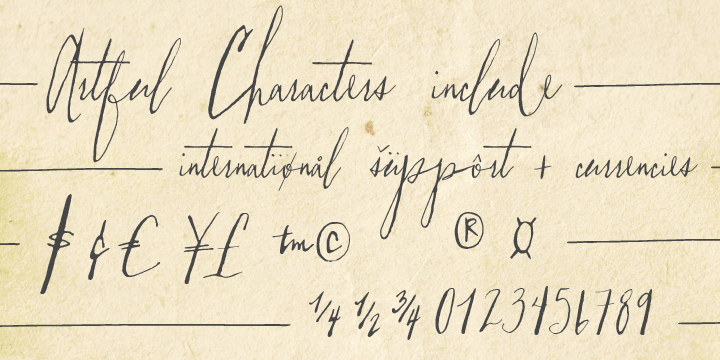 Artful Characters include
internatïønål šÿppôrt + currencies
$ ¢ € ¥ £ ™ © ® ¤
¼ ½ ¾ 0123456789